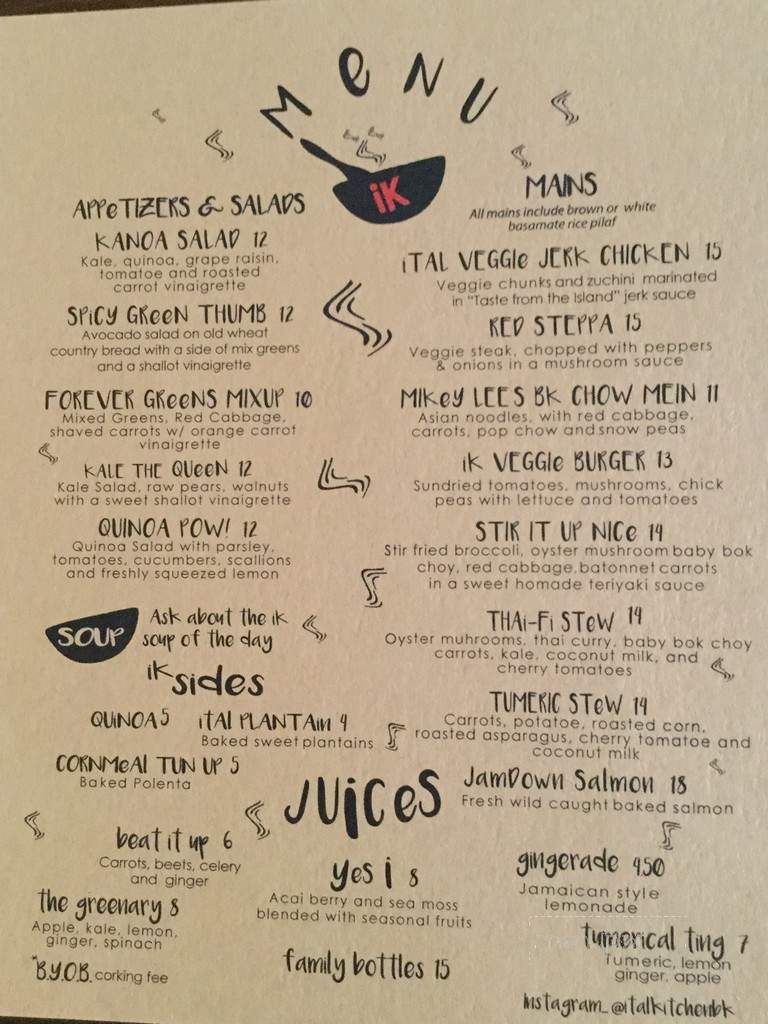 MENU
iK
APPETIZERS & SALADS
KANOA SALAD 12
Kale, quinoa, grape raisin,
tomatoe and roasted
carrot vinaigrette
SPICY GREEN THUMB 12
Avocado salad on old wheat
country bread with a side of mix greens
and a shallot vinaigrette
FOREVER GREENS MIXUP 10
Mixed Greens, Red Cabbage,
shaved carrots w/ orange carrot
vinaigrette
KALE THE QUEEN 12
Kale Salad, raw pears, walnuts
with a sweet shallot vinaigrette
QUINOA POW! 12
Quinoa Salad with parsley,
tomatoes, cucumbers, scallions
and freshly squeezed lemon
SOUP
Ask about the ik
soup of the day
ik sides
QUINOA 5
iTAL PLANTAIN 4
Baked sweet plantains
CORNMEAL TUN UP 5
Baked Polenta
MAINS
All mains include brown or white
basamate rice pilaf
iTAL VEGGIE JERK CHICKEN 15
Veggie chunks and zuchini marinated
in "Taste from the Island" jerk sauce
RED STEPPA 15
Veggie steak, chopped with peppers
& onions in a mushroom sauce
MIKEY LEES BK CHOW MEIN 11
Asian noodles, with red cabbage,
carrots, pop chow and snow peas
iK VEGGIE BURGER 13
Sundried tomatoes, mushrooms, chick
peas with lettuce and tomatoes
STIR IT UP NICE 14
Stir fried broccoli, oyster mushroom baby bok
choy, red cabbage, batonnet carrots
in a sweet homade teriyaki sauce
THAI-FI STEW 14
Oyster muhrooms, thai curry, baby bok choy
carrots, kale, coconut milk, and
cherry tomatoes
TUMERIC STEW 14
Carrots, potatoe, roasted corn,
roasted asparagus, cherry tomatoe and
coconut milk
JamDown Salmon 18
Fresh wild caught baked salmon
JUICES
beat it up 6
Carrots, beets, celery
and ginger
the greenary 8
Apple, kale, lemon,
ginger, spinach
yes i 8
Acai berry and sea moss
blended with seasonal fruits
family bottles 15
gingerade 4.50
Jamaican style
lemonade
tumerical ting 7
Tumeric, lemon
ginger, apple
*B.Y.O.B. corking fee
instagram_@italkitchenbk